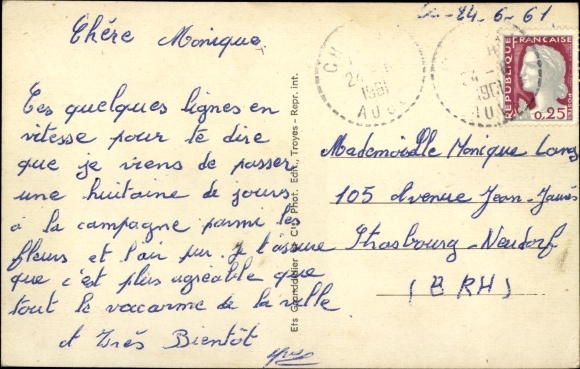 24-6-61
Chère Monique
Ces quelques lignes en
vitesse pour te dire
que je viens de passer
une huitaine de jours
à la campagne parmi les
fleurs et l'air pur je t'assure
que c'est plus agréable que
tout le vacarme de la ville
A Très Bientôt
Ets Granddidier & Cie Phot. Edit., Troyes - Repr. int.
24
1961
AUBE
24
1961
AUBE
REPUBLIQUE FRANÇAISE
0,25
Mademoiselle Monique Lang
105 Avenue Jean-Jaurès
Strasbourg-Neudorf
(BRH)